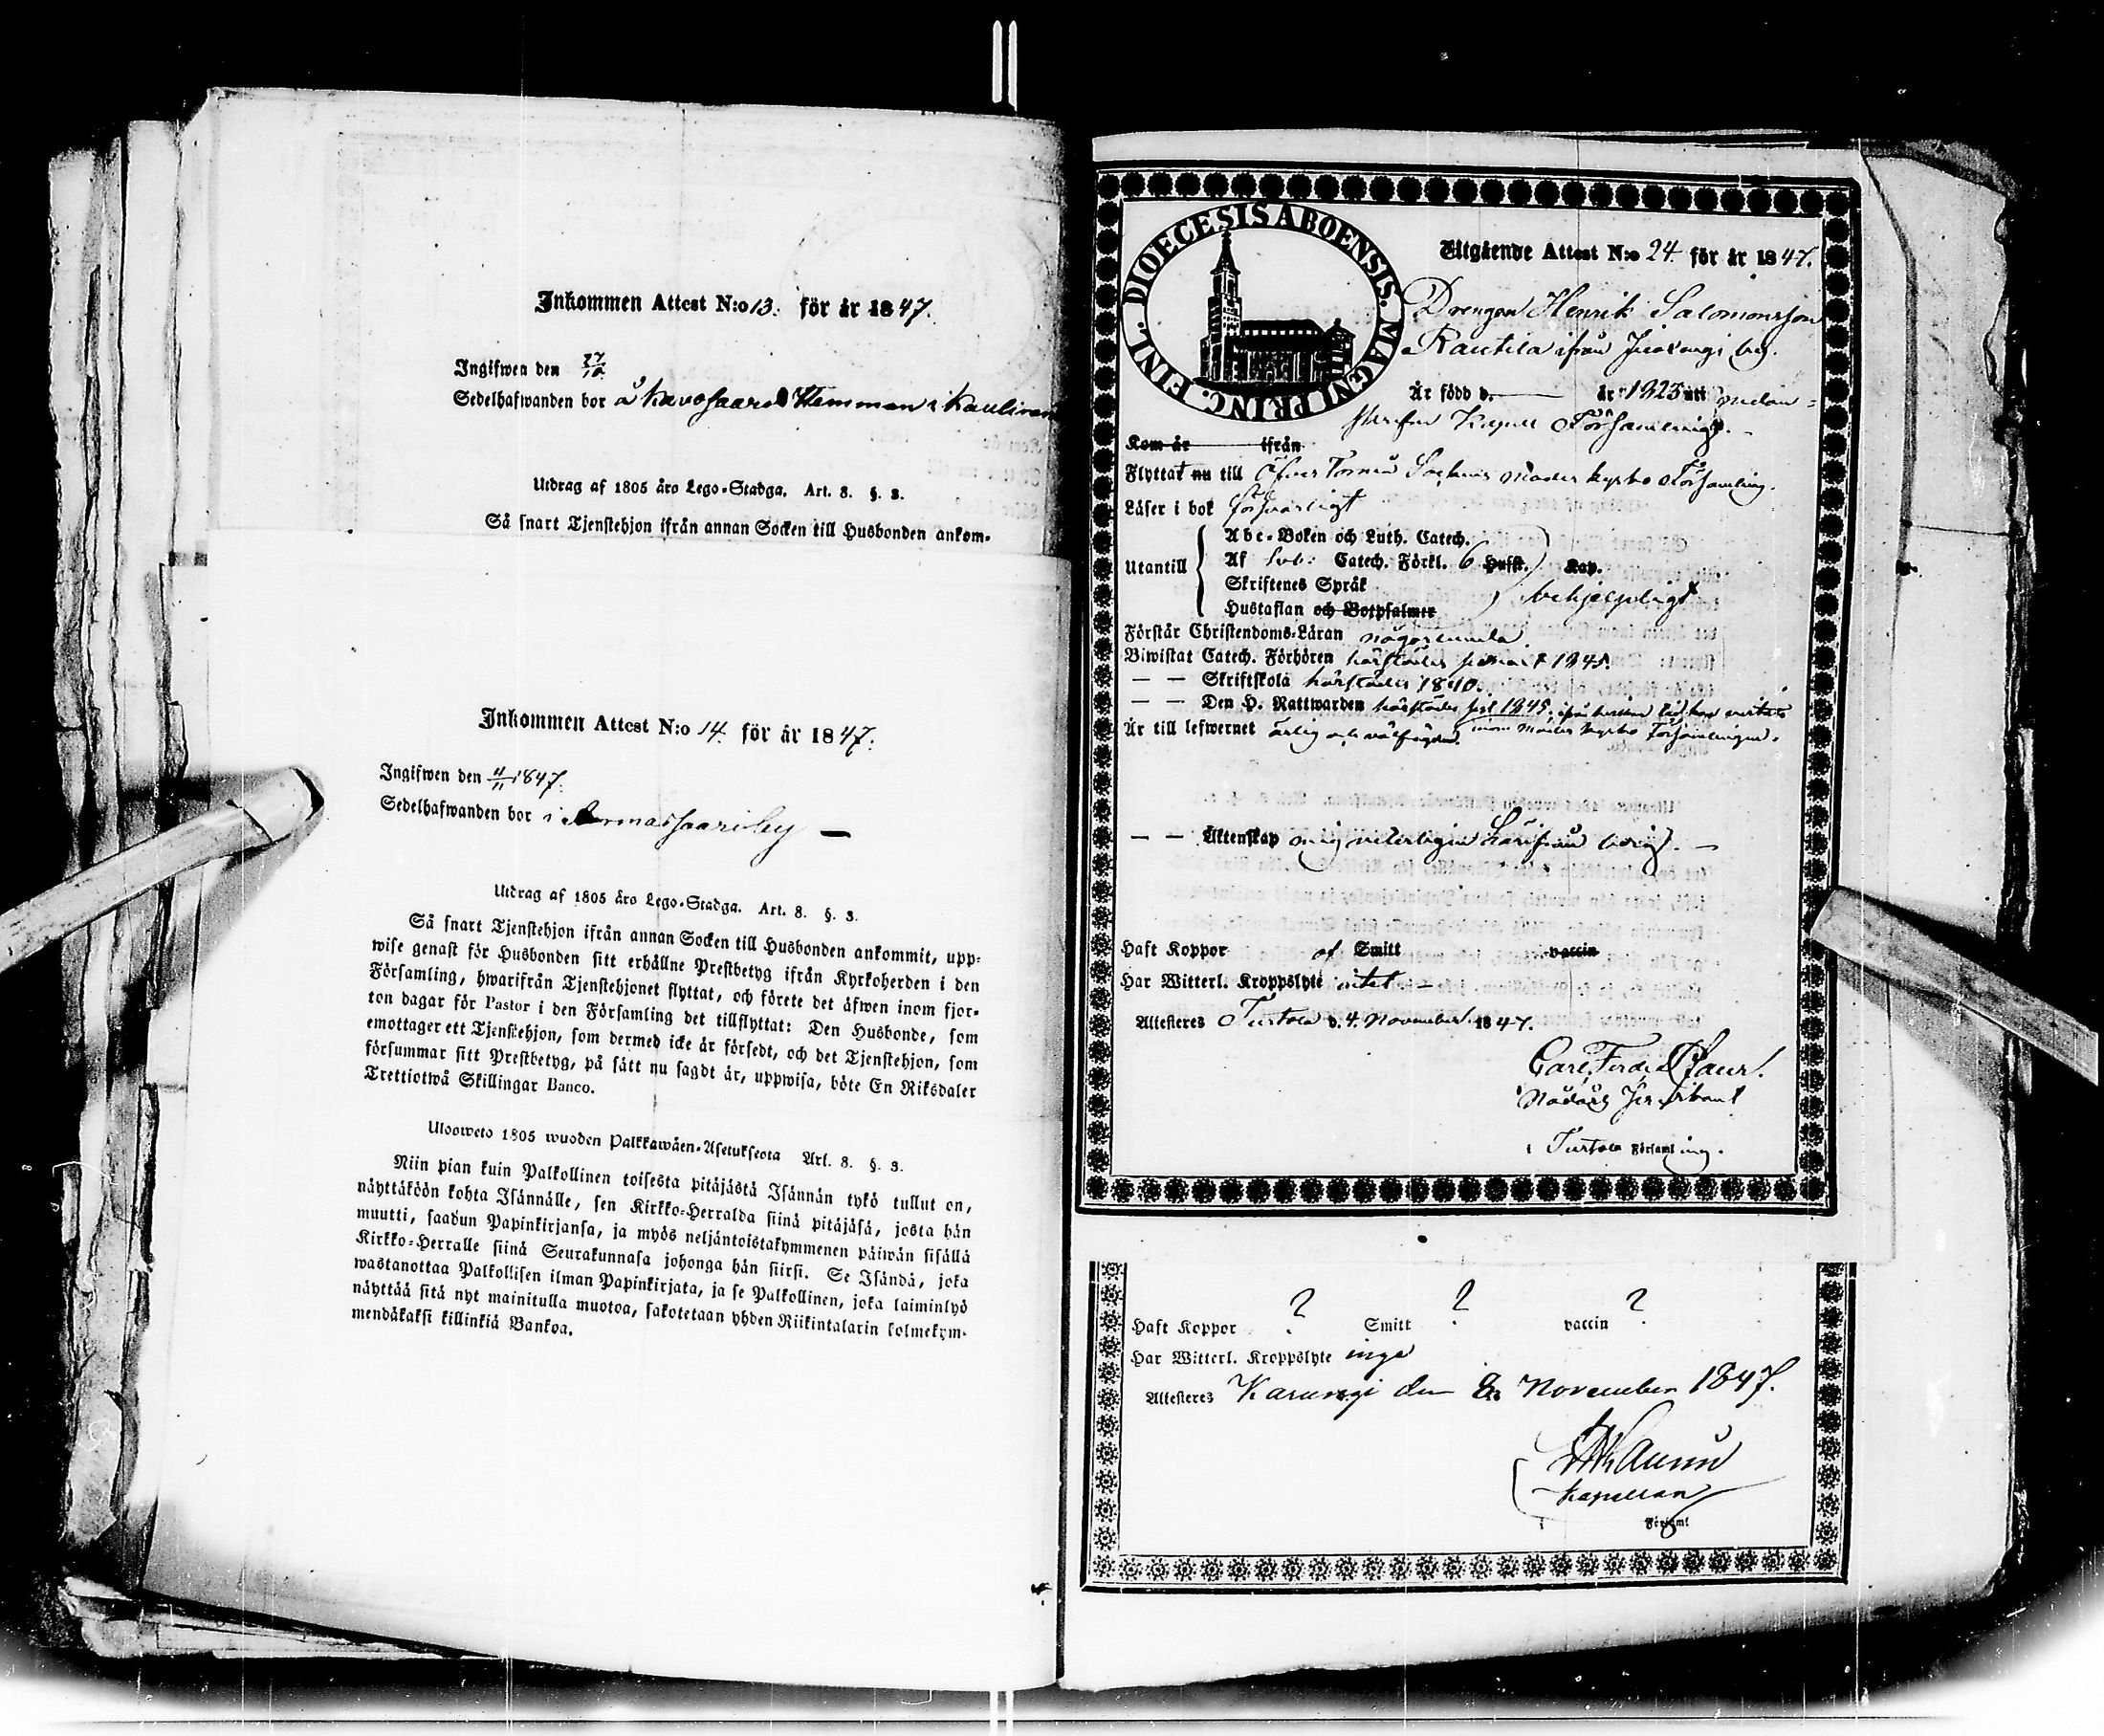 Inkommen Attest N:o 13. för år 1847.
Ingifwen den 27/10
Sedelhafwanden bor å Kavosaari Hemman i
Utdrag af 1805 års Lego-Stadga. Art. 8. §. 3.
Så snart Tjenstehjon ifrån annan Socken till Husbonden ankom-
Inkommen Attest N:o 14. för år 1847.
Ingifwen den 11/11 1847.
Sedelhafwanden bor i Armassaari by —
Utdrag af 1805 års Lego-Stadga. Art. 8. §. 3.
Så snart Tjenstehjon ifrån annan Socken till Husbonden ankommit, upp-
wise genast för Husbonden sitt erhållne Prestbetyg ifrån Kyrkoherden i den
Församling, hwarifrån Tjenstehjonet flyttat, och förete det äfwen inom fjor-
ton dagar för Pastor i den Församling det tillflyttat: Den Husbonde, som
emottager ett Tjenstehjon, som dermed icke är försedt, och det Tjenstehjon, som
försummar sitt Prestbetyg, på sätt nu sagdt är, uppwisa, böte En Riksdaler
Trettiotwå Skillingar Banco.
Ulosweto 1805 wuoden Palkkawäen-Asetuksesta Art. 8. §. 3.
Niin pian kuin Palkollinen toisesta pitäjästä Isännän tykö tullut on,
näyttäköön kohta Isännälle, sen Kirkko-Herralda siinä pitäjäsä, josta hän
muutti, saadun Papinkirjansa, ja myös neljäntoistakymmenen päiwän sisällä
Kirkko-Herralle siinä Seurakunnasa johonga hän siirsi. Se Isändä, joka
wastanottaa Palkollisen ilman Papinkirjata, ja se Palkollinen, joka laiminlyö
näyttää sitä nyt mainitulla muotoa, sakotetaan yhden Riikintalarin kolmekym-
mendäkaksi killinkiä Bankoa.
DIOECESIS ABOENSIS. MAGNI PRINC. FINL.
Utgående Attest N:o 24. för år 1847.
Drengen Henrik Salomonsson
Rautila ifrån Juoxengi by.
Är född d. — år 1825 uti nedan-
skrefne Kapell Församling. —
Kom år ifrån
Flyttat nu till Öfver Torneå Sockens Moder kyrko Församling.
Läser i bok försvarligt
Utantill
Abc-Boken och Luth. Catech.
Af Catech. Förkl. 6 Hufst. Kap.
Skriftenes Språk
Hustaflan och Botpsalmer
behjelpligt
Förstår Christendoms-Läran någorlunda
Biwistat Catech. Förhören härstädes 1845.
— — Skriftskola härstädes 1840.
— — Den H. Nattwarden härstädes 1845, ifrån hvilken tid han vistats
Är till lefwernet ärlig och välfrägdad. inom Moder kyrko Församlingen.
— — Äktenskap mig veterligen härifrån ledig. —
Haft Koppor af Smitt vaccin
Har Witterl. Kroppslyte intet —
Attesteres Turtola d. 4. November 1847.
i Turtola Församling.
Haft Koppor ? Smitt ? vaccin ?
Har Witterl. Kroppslyte inga
Attesteres Karungi den 8. November 1847.
Kapellan
i Församl